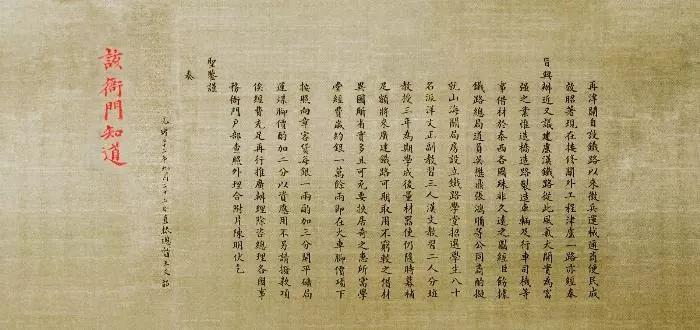 再津關自設鐵路以來徵兵運械通商便民成
效昭著現在接修關外工程津盧一路亦經奏
旨興辦近又議建盧漢鐵路從此風氣大開實為富
強之業惟造橋造路製造車輛及行車司機等
事借材於泰西各國殊非久遠之圖經飭據
鐵路總局道員吳懋鼎張鴻順等公同商酌擬
就山海關局房設立鐵路學堂招選學生八十
名派洋文正副教習三人漢文教習二人分班
教授三年為期學成後量材器使仍隨時募補
足額將來廣建鐵路可期取用不窮較之借材
異國所省實多且可免要挾居奇之患所需學
堂經費歲約銀一萬餘兩即在火車腳價項下
按照向章客貨每銀一兩酌加三分開平礦局
運煤腳價酌加二分以資應用不另請撥款項
俟經費充足再行推廣辦理除咨總理各國事
務衙門戶部查照外理合附片陳明伏乞
聖鑒謹
奏
光緒二十二年九月二十二日直隸總督王文韶
該衙門知道